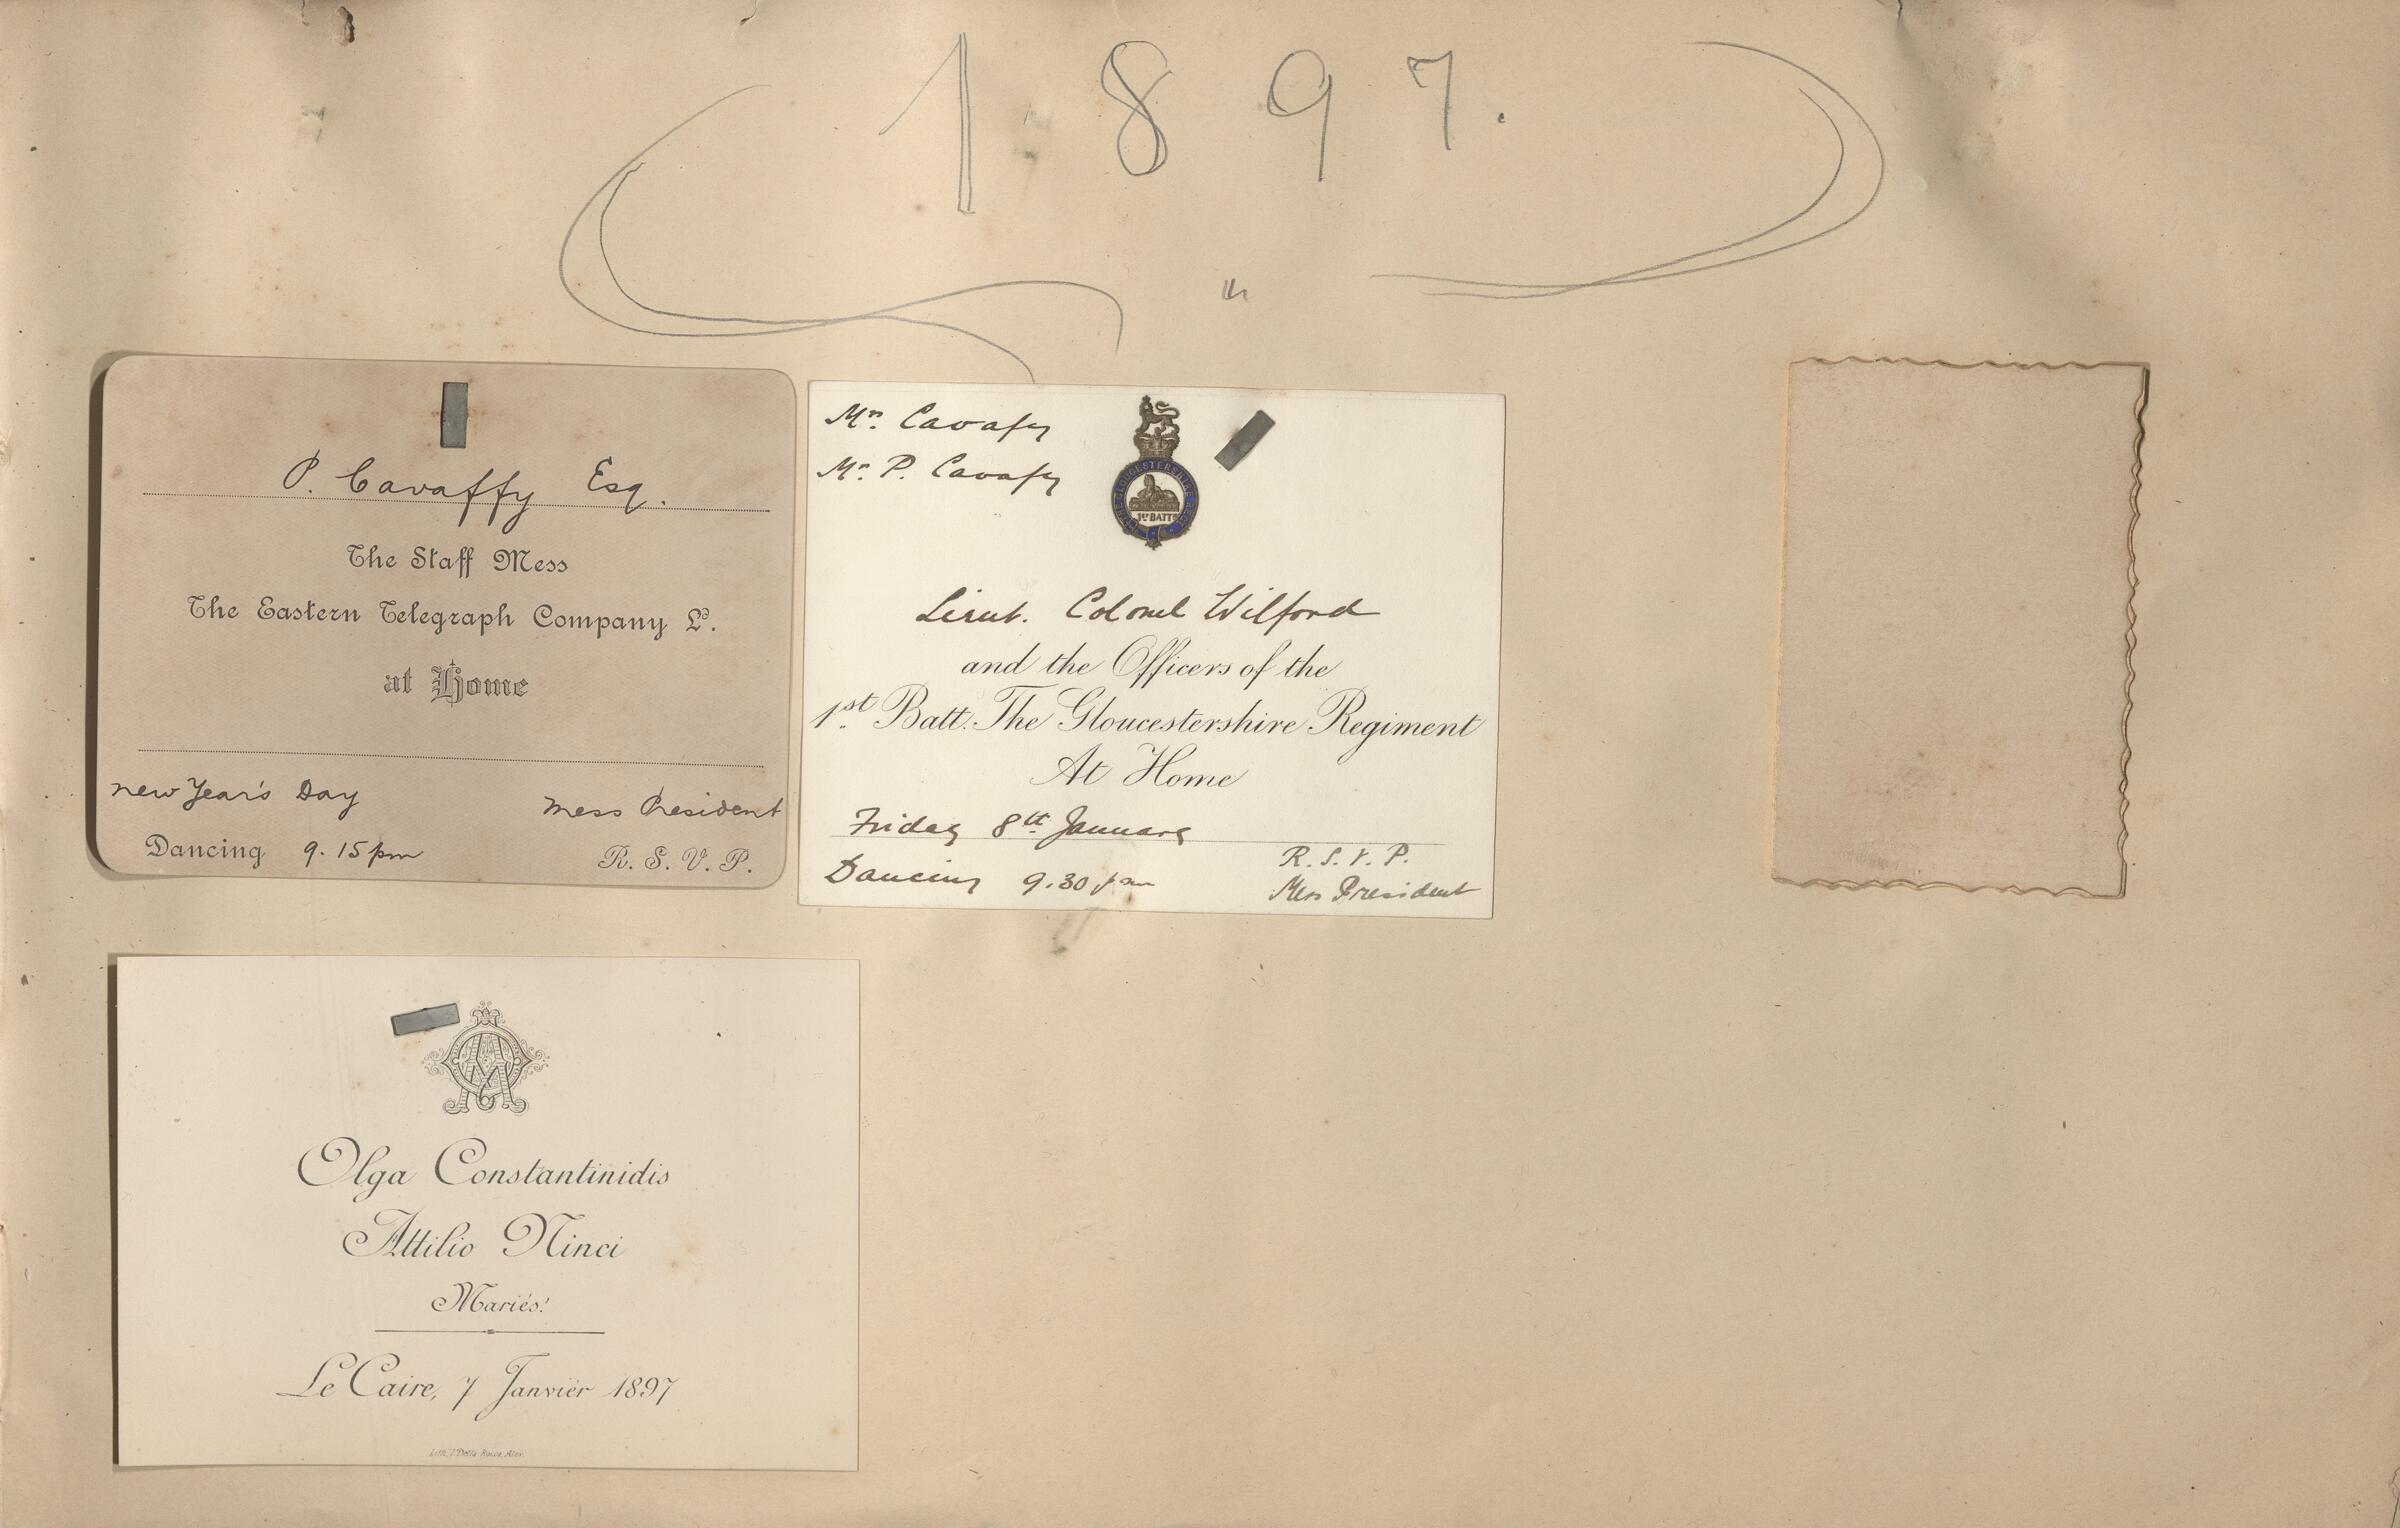 1897.
"
P. Cavaffy Esq.
The Staff Mess
The Eastern Telegraph Company Ld.
at Home
New Year's Day
Mess President
Dancing 9.15 pm
R. S. V. P.
Mr. Cavafy
Mr. P. Cavafy
THE GLOUCESTERSHIRE REGT
1st BATTN
Lieut. Colonel Wilford
and the Officers of the
1st Batt. The Gloucestershire Regiment
At Home
Friday 8th January
Dancing 9.30 pm
R. S. V. P.
Mess President
Olga Constantinidis
Attilio Ninci
Mariés.
Le Caire, 7 Janvier 1897
Lith. Della Rocca Alex.